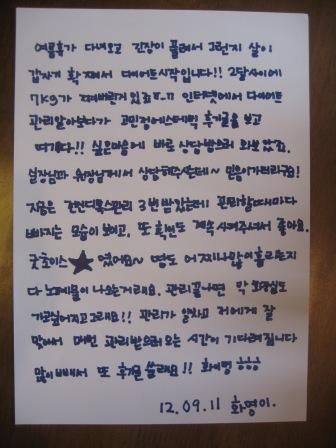 여름휴가 다녀오고 긴장이 풀려서 그런지 살이
갑자기 확 쪄서 다이어트시작입니다!! 2달사이에
7kg가 쪄버린거 있죠ㅠ-ㅠ 인터넷에서 다이어트
관리알아보다가 고민정에스테틱 후기글을 보고
여기다!! 싶은마음에 바로 상담받으러 와봤죠.
실장님과 원장님께서 상담해주셨는데~ 믿음이가더라구요!
지금은 관리 3번 받았는데 관리할때마다
빠지는 모습이 보이고, 또 확인도 계속 시켜주셔서 좋아요.
굿초이스★ 였어요~ 땀도 어찌나많이흘리는지
다 노폐물이 나오는거래요. 관리끝나면 막 화장실도
가고싶어지고그래요!! 관리가 저에게 잘
맞아서 매번 관리받으러 오는 시간이 기다려집니다
많이 빼서 또 후기 쓸래요!! 화이팅 ㅎㅎㅎ
12. 09. 11 화영이.